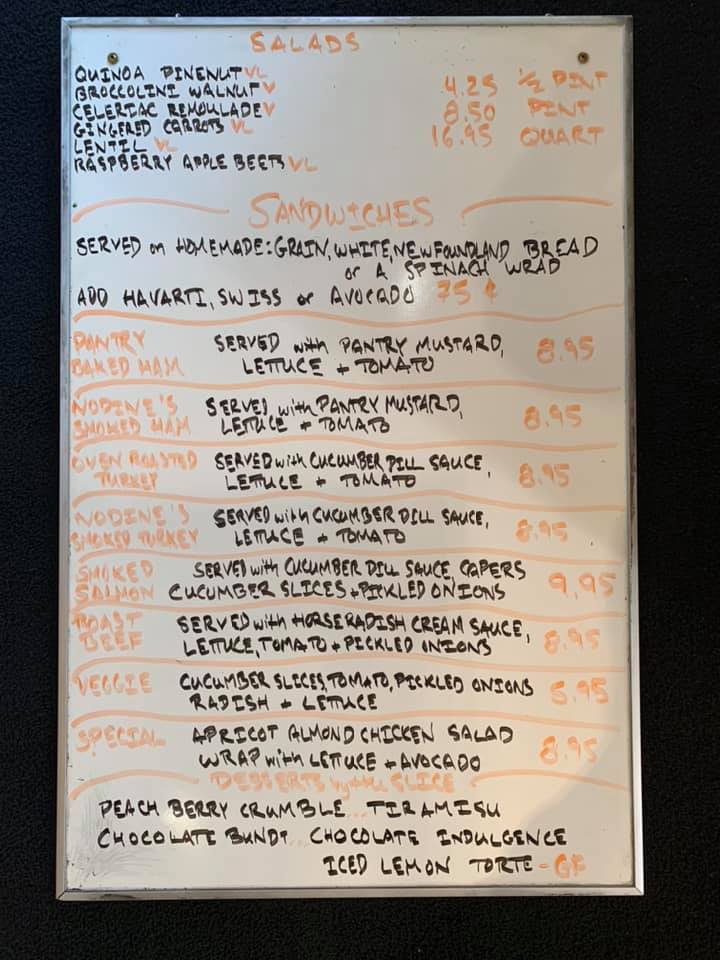 SALADS
QUINOA PINENUT VL
BROCCOLINI WALNUT V
CELERIAC REMOULADE V
GINGERED CARROTS VL
LENTIL VL
RASPBERRY APPLE BEETS VL
4.25 1/2 PINT
8.50 PINT
16.95 QUART
SANDWICHES
SERVED on HOMEMADE: GRAIN, WHITE, NEWFOUNDLAND BREAD
or A SPINACH WRAP
ADD HAVARTI, SWISS or AVOCADO 75 ¢
PANTRY BAKED HAM
SERVED with PANTRY MUSTARD,
LETTUCE + TOMATO
8.95
NODINE'S SMOKED HAM
SERVED with PANTRY MUSTARD,
LETTUCE + TOMATO
8.95
OVEN ROASTED TURKEY
SERVED with CUCUMBER DILL SAUCE,
LETTUCE + TOMATO
8.95
NODINE'S SMOKED TURKEY
SERVED with CUCUMBER DILL SAUCE,
LETTUCE + TOMATO
8.95
SMOKED SALMON
SERVED with CUCUMBER DILL SAUCE, CAPERS
CUCUMBER SLICES + PICKLED ONIONS
9.95
ROAST BEEF
SERVED with HORSERADISH CREAM SAUCE,
LETTUCE, TOMATO + PICKLED ONIONS
8.95
VEGGIE
CUCUMBER SLICES, TOMATO, PICKLED ONIONS
RADISH + LETTUCE
5.95
SPECIAL
APRICOT ALMOND CHICKEN SALAD
WRAP with LETTUCE + AVOCADO
8.95
DESSERTS by the SLICE
PEACH BERRY CRUMBLE... TIRAMISU
CHOCOLATE BUNDT... CHOCOLATE INDULGENCE
ICED LEMON TORTE - GF